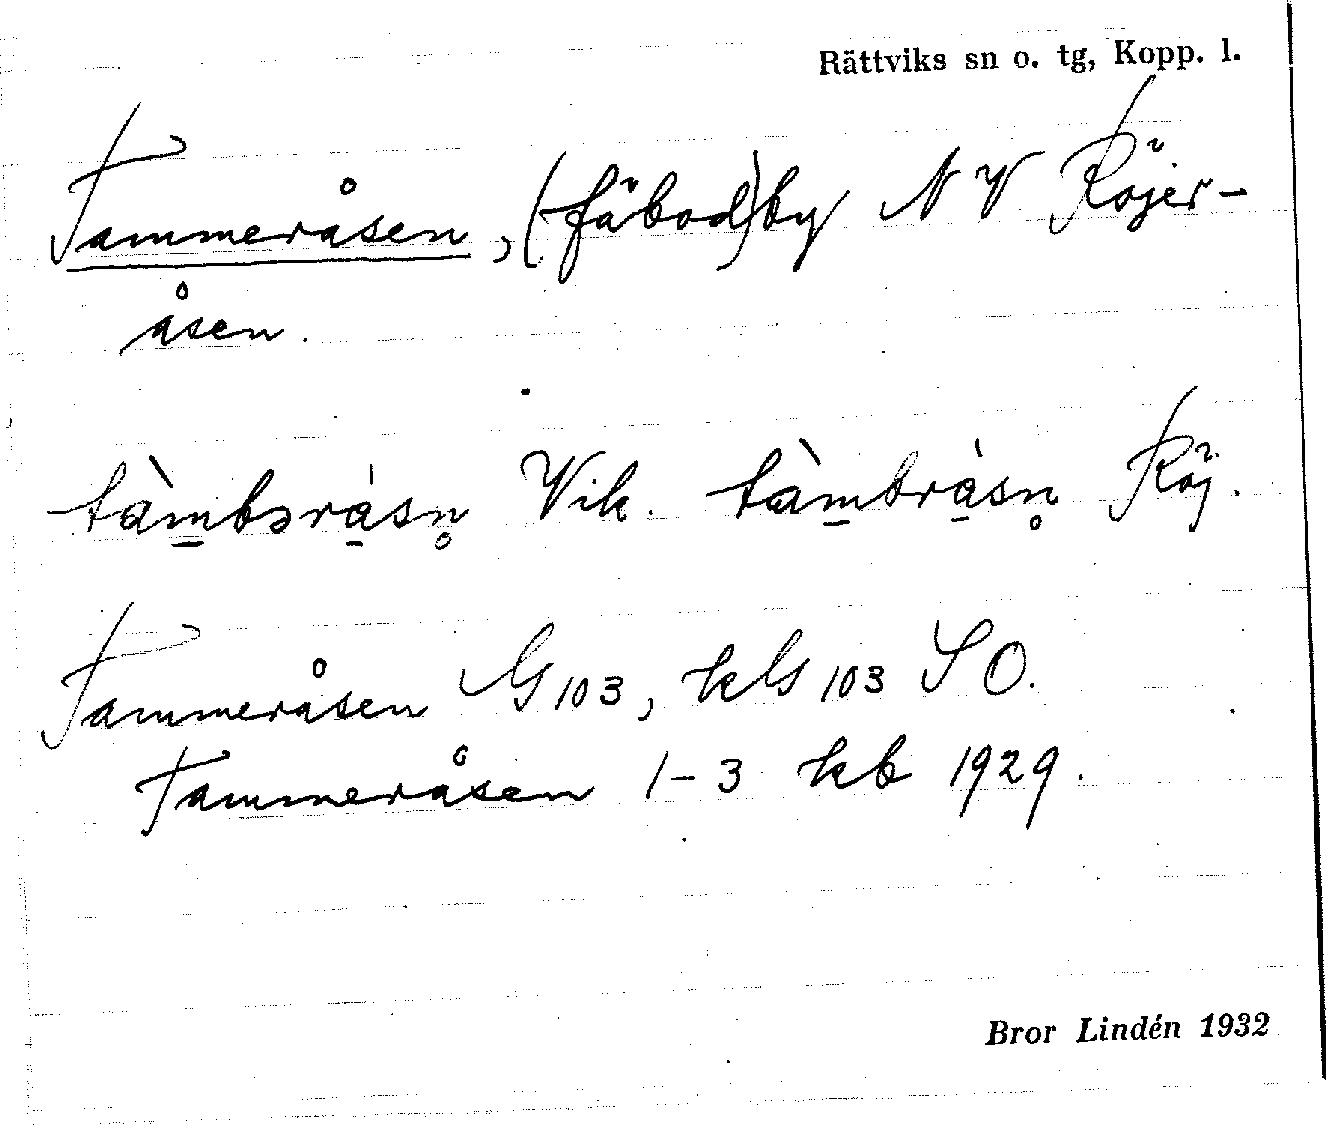 Rättviks sn o. tg, Kopp. l.
Tammeråsen, (fäbod)by NV Röjer-
åsen.
tàm̲bərá̲sn̥ Vik. tàm̲brá̲sn̥ Röj.
Tammeråsen G 103, kG 103 SO.
Tammeråsen 1-3 kb 1929.
Bror Lindén 1932